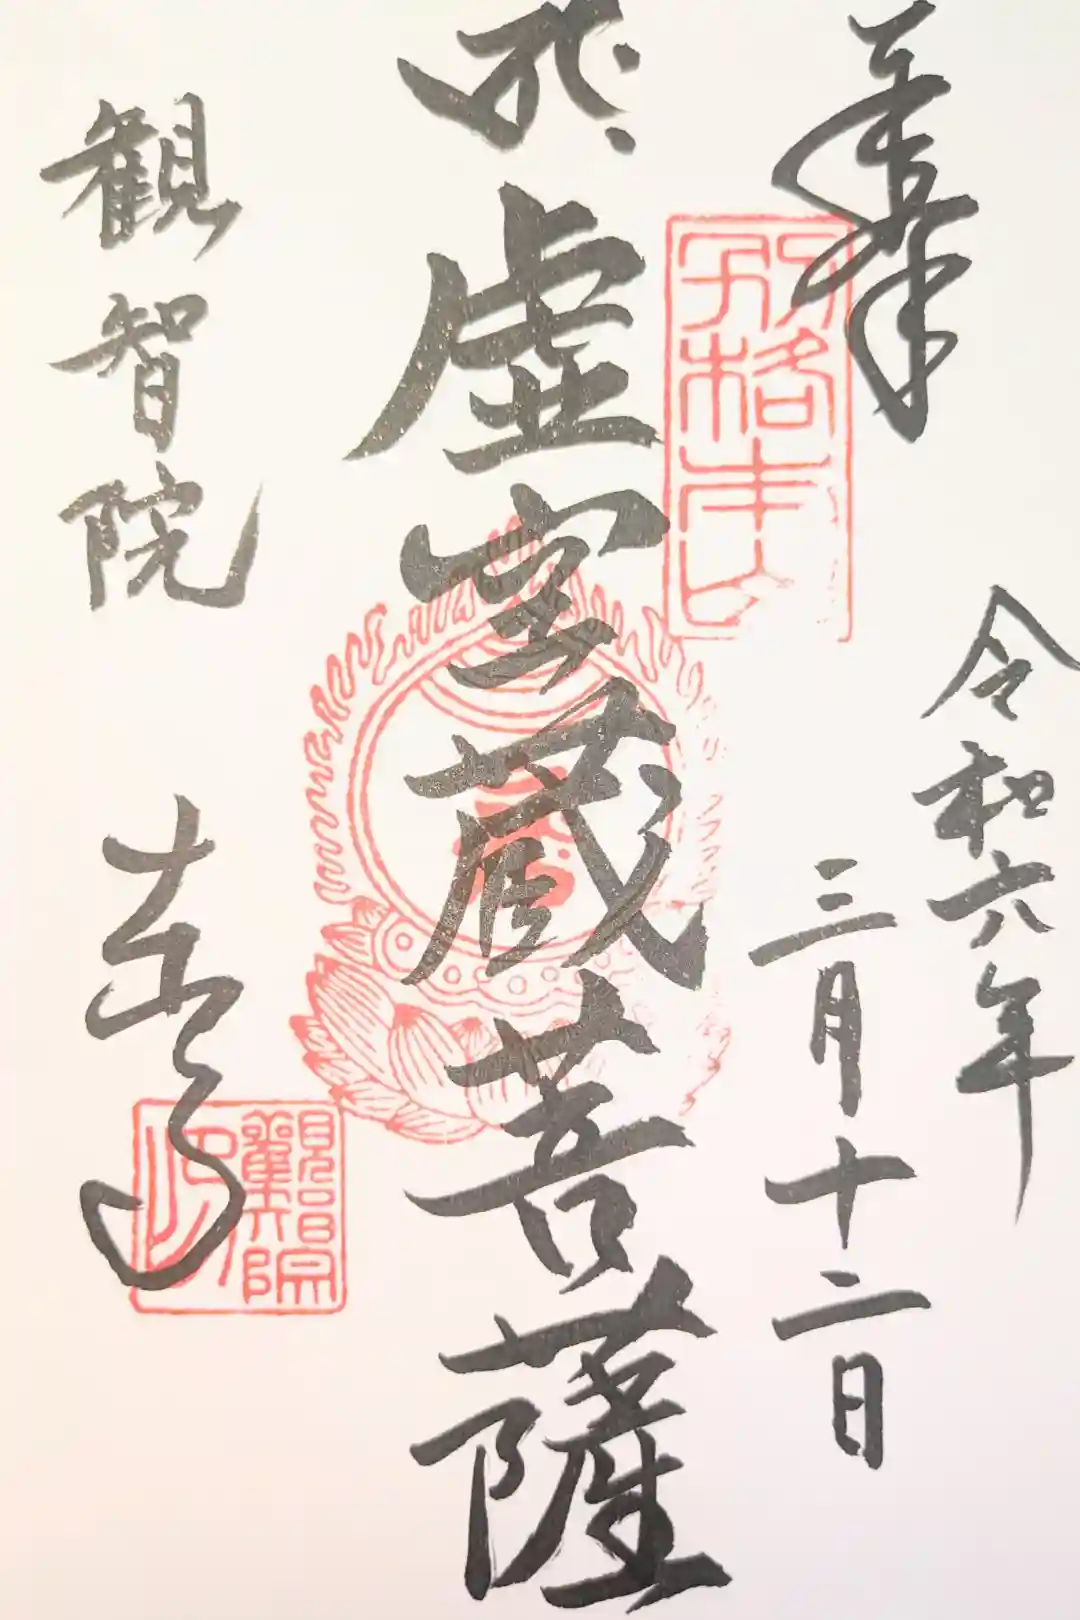 奉拝
令和六年
三月十二日
別格本山
虚空蔵菩薩
観智院
觀智院印